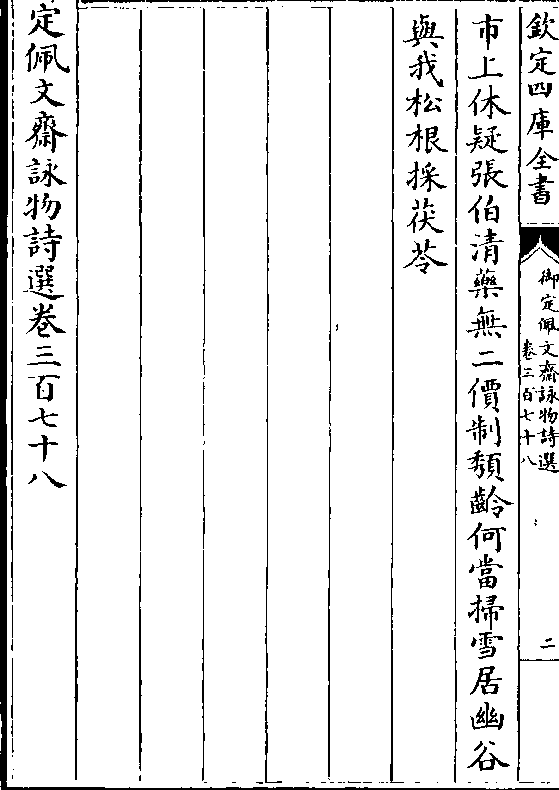 欽定四庫全書
御定佩文齋詠物詩選
卷三百七十八
二
市上休疑張伯清藥無二價制頽齡何當掃雪居幽谷
與我松根採茯苓
定佩文齋詠物詩選卷三百七十八